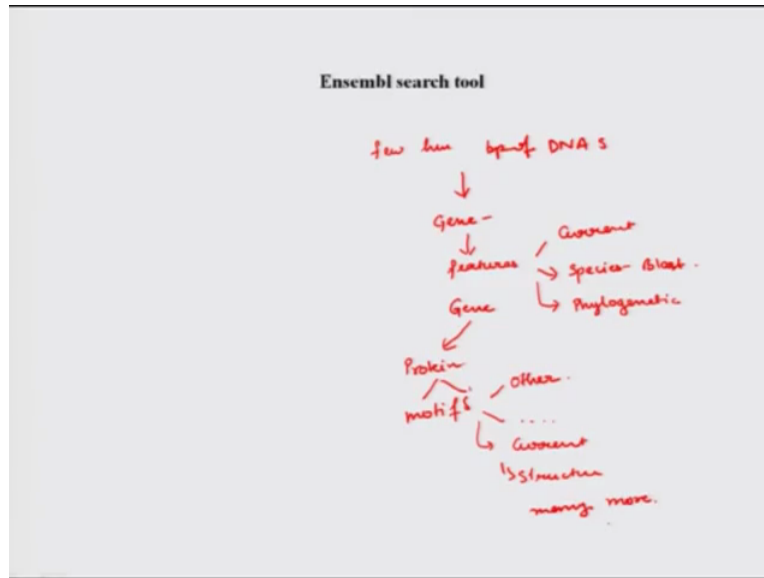 Ensembl search tool
few hun bp of DNA S
Gene -
features
Current
Species - Blast .
Phylogenetic
Gene
Protein
motifs
Other .
. . . .
Current
Structure
many more .